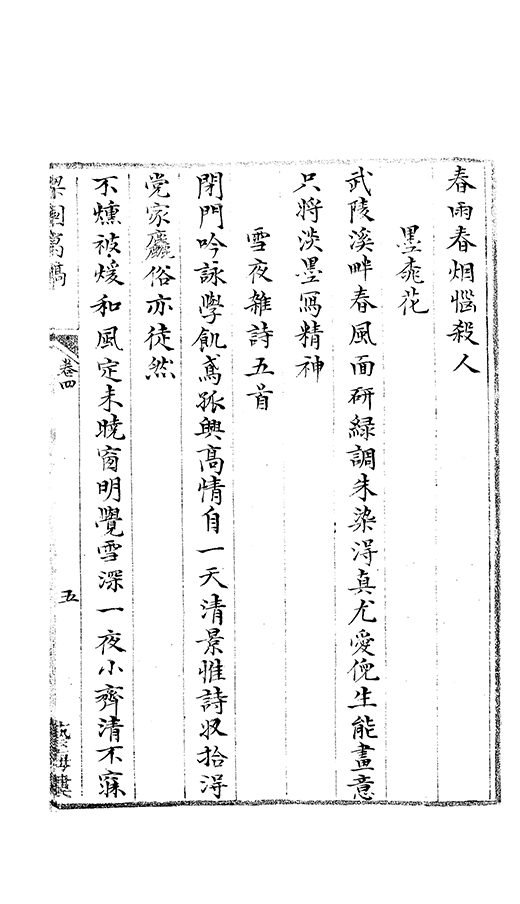 春雨春烟惱殺人
墨桃花
武陵溪畔春風面研緑調朱染淂真尤愛倪生能畫意
只将淡墨寫精神
雪夜雜詩五首
閉門吟詠學飢鳶孤興高情自一天清景惟詩収拾淂
党家麤俗亦徒然
不燻被煖和風定未曉窗明覺雪深一夜小齊清不寐
梁園寓稿
卷四
五